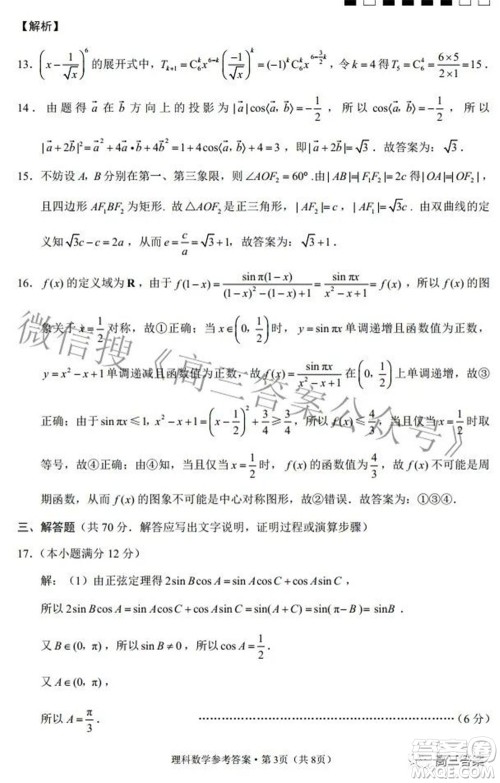 【解析】
13. (x − 1/√x)⁶ 的展开式中，T_{k+1} = C₆ᵏ x^{6−k} (−1/√x)ᵏ = (−1)ᵏ C₆ᵏ x^{6−(3/2)k}，令 k = 4 得 T₅ = C₆⁴ = (6×5)/(2×1) = 15．
14．由题得 a⃗ 在 b⃗ 方向上的投影为 |a⃗|cos⟨a⃗，b⃗⟩ = −1/2，所以 cos⟨a⃗，b⃗⟩ = −1/2，所以
|a⃗ + 2b⃗|² = a⃗² + 4a⃗•b⃗ + 4b⃗² = 1 + 4cos⟨a⃗，b⃗⟩ + 4 = 3，即 |a⃗ + 2b⃗| = √3．故答案为：√3．
15．不妨设 A，B 分别在第一、第三象限，则∠AOF₂ = 60°．由 |AB| = |F₁F₂| = 2c 得 |OA| = |OF₂|，
且四边形 AF₁BF₂ 为矩形．故△AOF₂ 是正三角形，|AF₂| = c，|AF₁| = √3c．由双曲线的定
义知 √3c − c = 2a，从而 e = c/a = √3 + 1，故答案为：√3 + 1．
16．f(x) 的定义域为 R，由于 f(1−x) = sin π(1−x)/((1−x)² − (1−x) + 1) = sin πx/(x² − x + 1) = f(x)，所以 f(x) 的图
象关于 x = 1/2 对称，故①正确；当 x∈(0，1/2) 时，y = sin πx 单调递增且函数值为正数，
y = x² − x + 1 单调递减且函数值为正数，故 f(x) = sin πx/(x² − x + 1) 在 (0，1/2) 上单调递增，故③
正确；由于 sin πx ≤ 1，x² − x + 1 = (x − 1/2)² + 3/4 ≥ 3/4，所以 f(x) ≤ 4/3，当且仅当 x = 1/2 时取
等号，故④正确；由④知，当且仅当 x = 1/2 时，f(x) 的函数值为 4/3，故 f(x) 不是周
期函数，从而 f(x) 的图象不可能是中心对称图形，故②错误．故答案为：①③④．
三、解答题（共 70 分．解答应写出文字说明，证明过程或演算步骤）
17．（本小题满分 12 分）
解：（1）由正弦定理得 2sin B cos A = sin A cos C + cos A sin C，
所以 2sin B cos A = sin A cos C + cos A sin C = sin(A + C) = sin(π − B) = sin B．
又 B∈(0，π)，所以 sin B ≠ 0，所以 cos A = 1/2．
又 A∈(0，π)，
所以 A = π/3．……………………………………（6 分）
理科数学参考答案·第 3页（共 8页）
微信搜《高三答案公众号》
高三答案